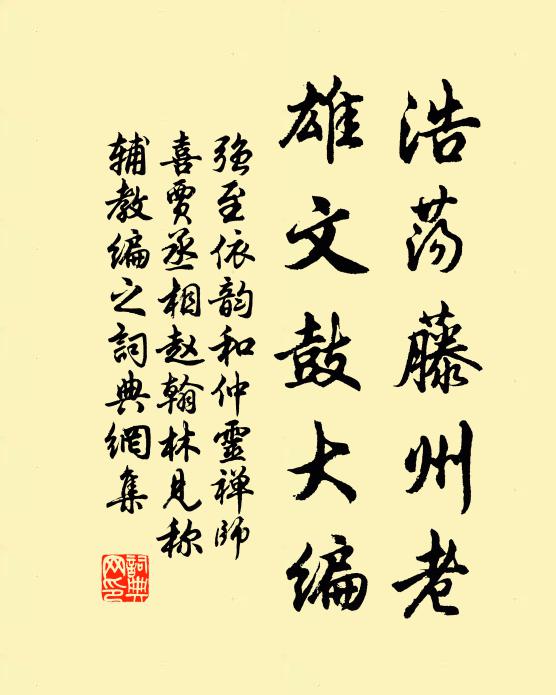 浩荡藤州老
雄文鼓大编
强至依韵和仲灵禅师
喜贾丞相赵翰林见称
辅教编之词典网集
词典网印